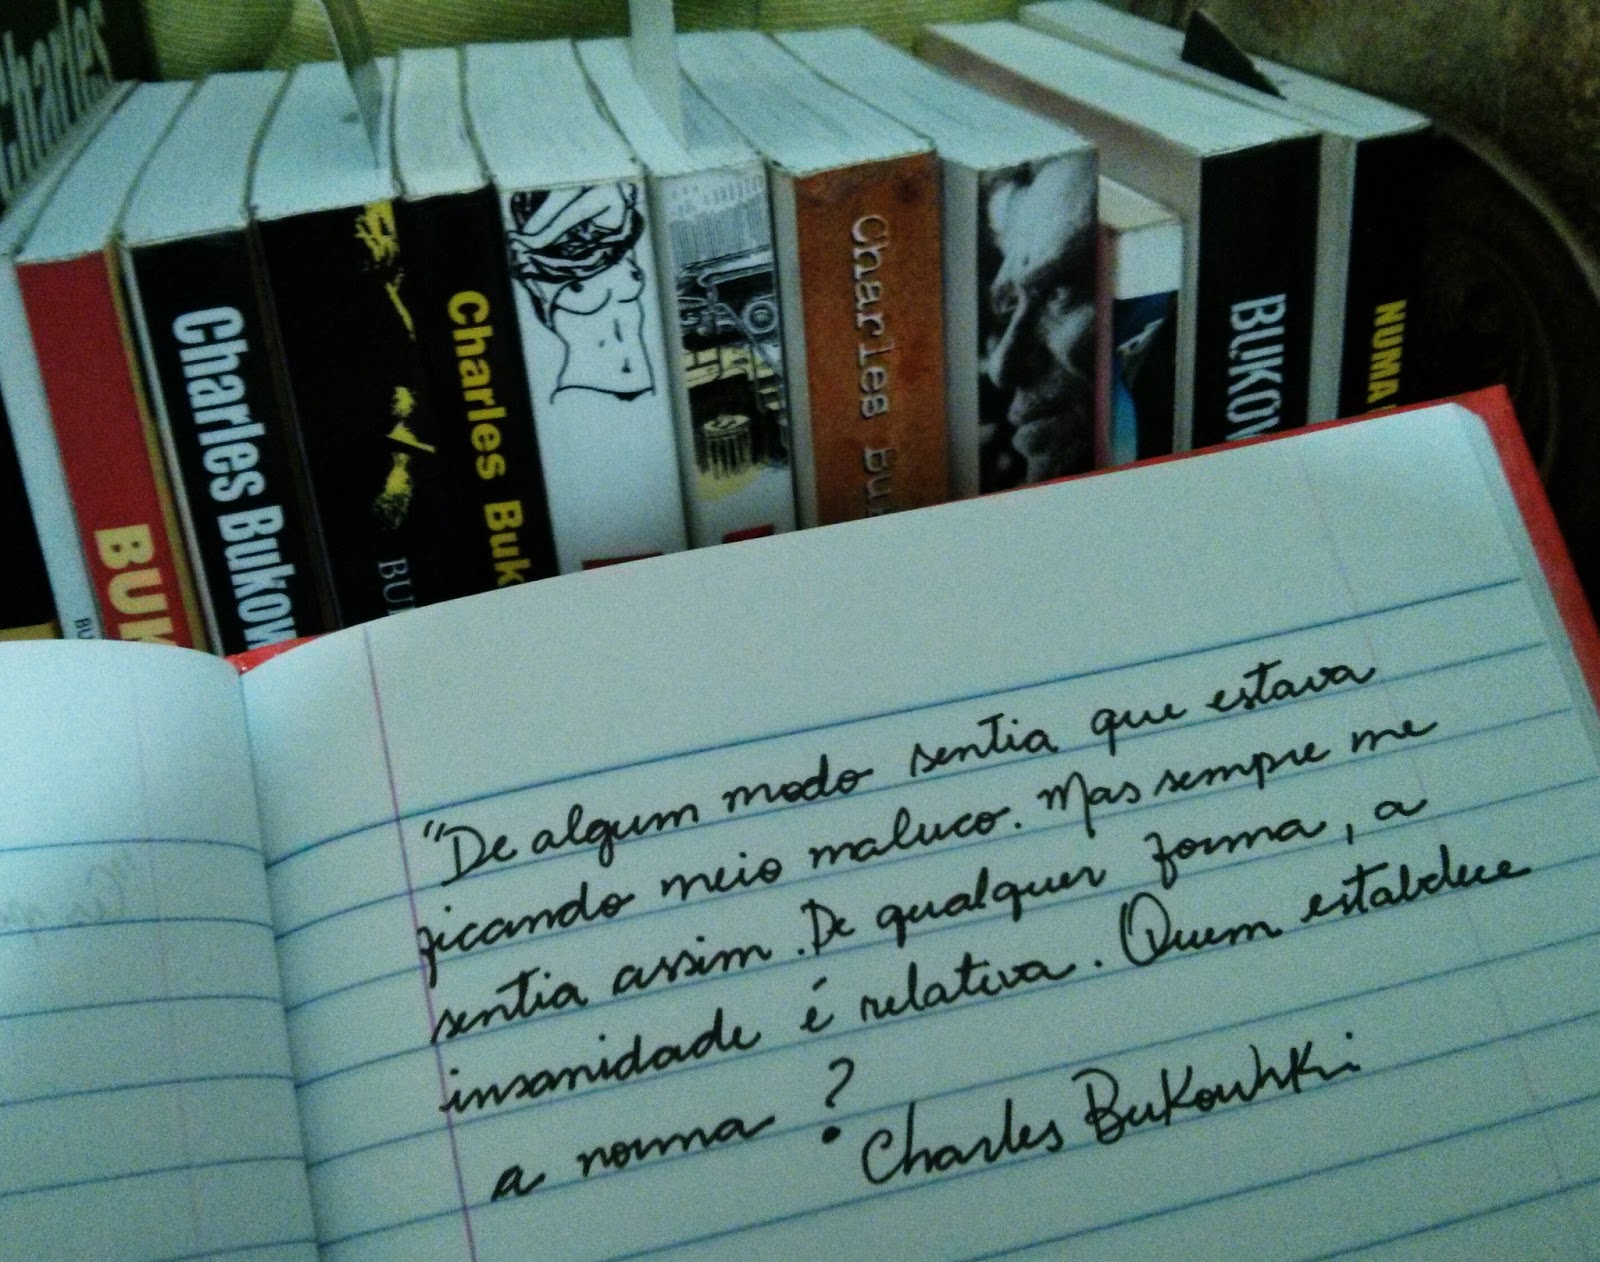 Charles
BU
BUK
Charles Bukow
BU
Charles Buk
Charles Bu
BUKOW
NUMA
"De algum modo sentia que estava
ficando meio maluco. Mas sempre me
sentia assim. De qualquer forma, a
insanidade é relativa. Quem estabelece
a norma?
Charles Bukowski